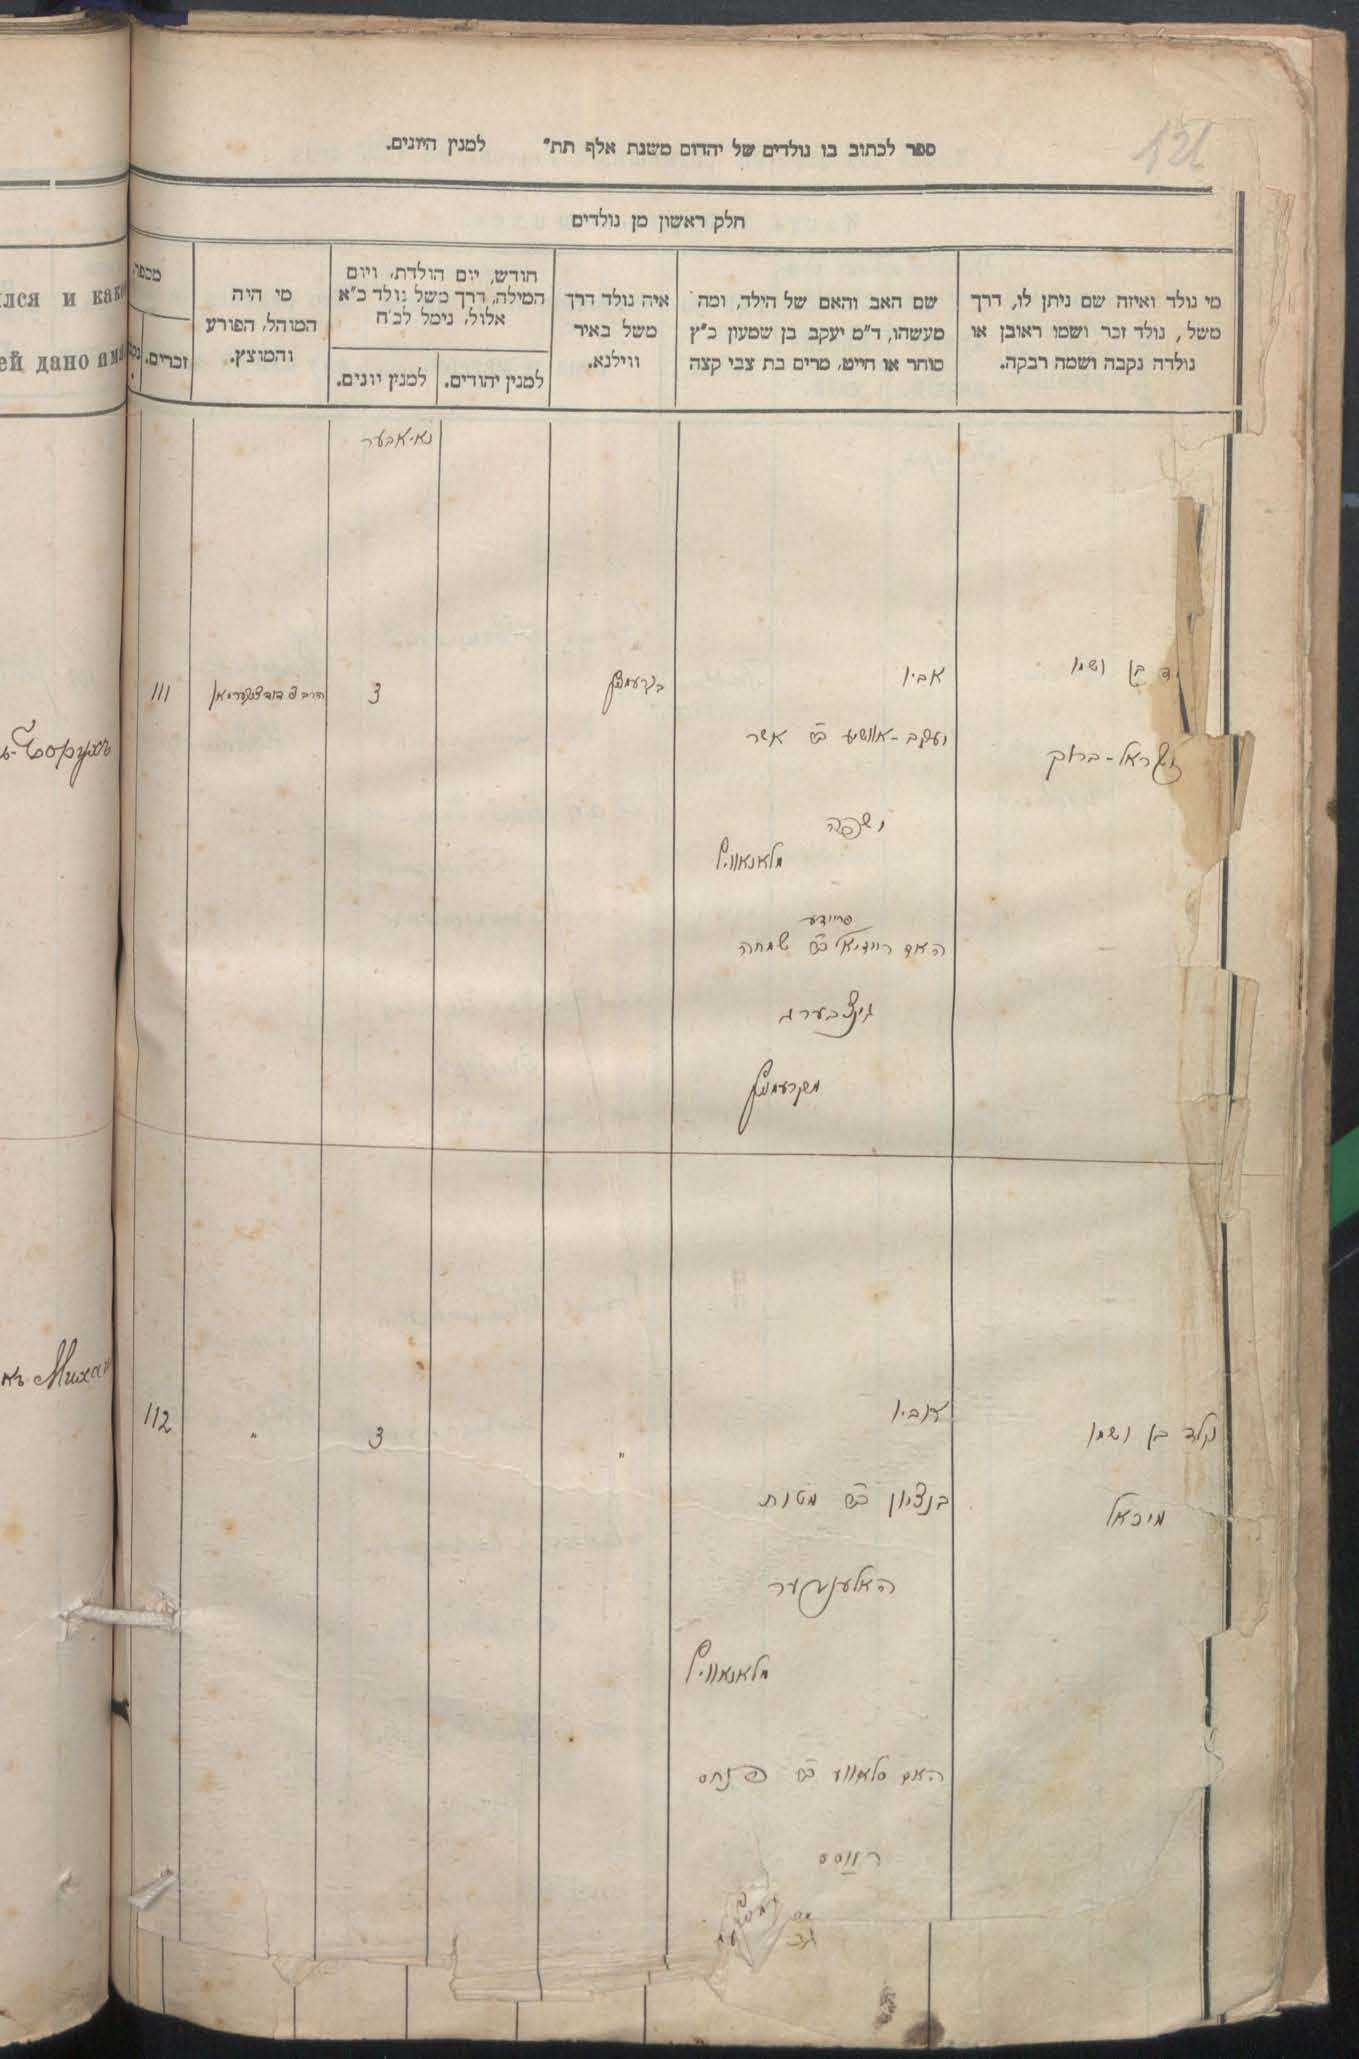 121
ספר לכתוב בו נולדים של יהדום משנת אלף תת״ למנין היונים.
חלק ראשון מן נולדים
מי נולד ואיזה שם ניתן לו, דרך
משל, נולד זכר ושמו ראובן או
נולדה נקבה ושמה רבקה.
שם האב והאם של הילד, ומה
מעשהו, ד״מ יעקב בן שמעון כ״ץ
סוחר או חייט, מרים בת צבי קצה
איה נולד דרך
משל באיר
ווילנא.
חודש, יום הולדת, ויום
המילה, דרך משל נולד כ״א
אלול, נימל לכ״ח
למנין יהודים.
למנין יונים.
מי היה
המוהל, הפורע
והמוצץ.
מספר
זכרים.
лся и како
ей дано имя
נאיאבער
בן ושמו
ישראל-ברוך
אביו
יעקב-אוושיע ב״ר אשר
מלאנאוויץ
פריידע
האם רייזיאל ב״ר שמחה
גינצבערג
מקרעמניץ
בקרעמניץ
3
הרב ר׳ דוד
111
ъ-Борухъ
נולד בן ושמו
מיכאל
אביו
בנציון ב״ר מטות
מלאנאוויץ
האם סלאווע ב״ר פנחס
רווסס
"
3
"
112
къ Михаи